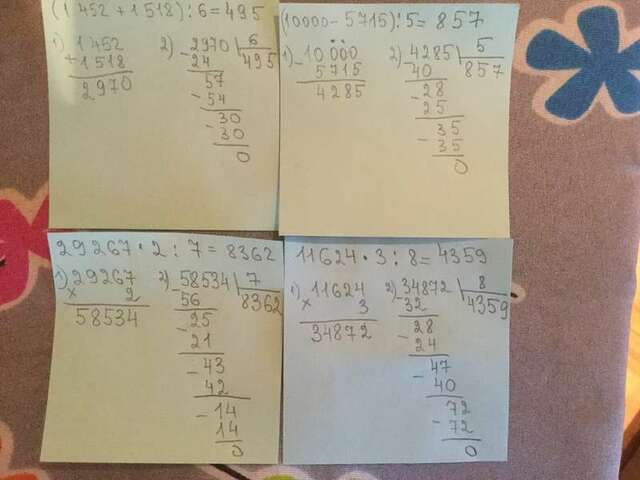 (1452 + 1518) : 6 = 495
1) 1452
+ 1518
2970
2) - 2970 6
24 495
57
- 54
- 30
30
0
(10000 - 5715) : 5 = 857
1) - 10000
5715
4285
2) - 4285 5
40 857
- 28
25
- 35
35
0
29267 · 2 : 7 = 8362
1) 29267
× 2
58534
2) - 58534 7
56 8362
- 25
21
- 43
42
- 14
14
0
11624 · 3 : 8 = 4359
1) 11624
× 3
34872
2) - 34872 8
32 4359
- 28
24
- 47
40
- 72
72
0